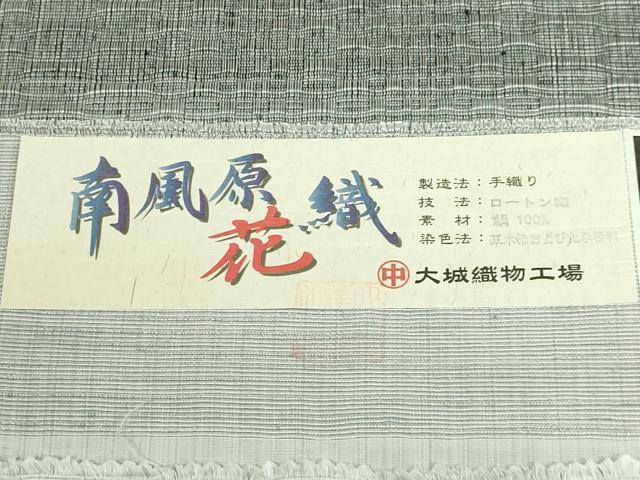 南風原花織
製造法：手織り
技　法：ロートン織
素　材：絹 100%
染色法：草木染および化学染料
㊥大城織物工場